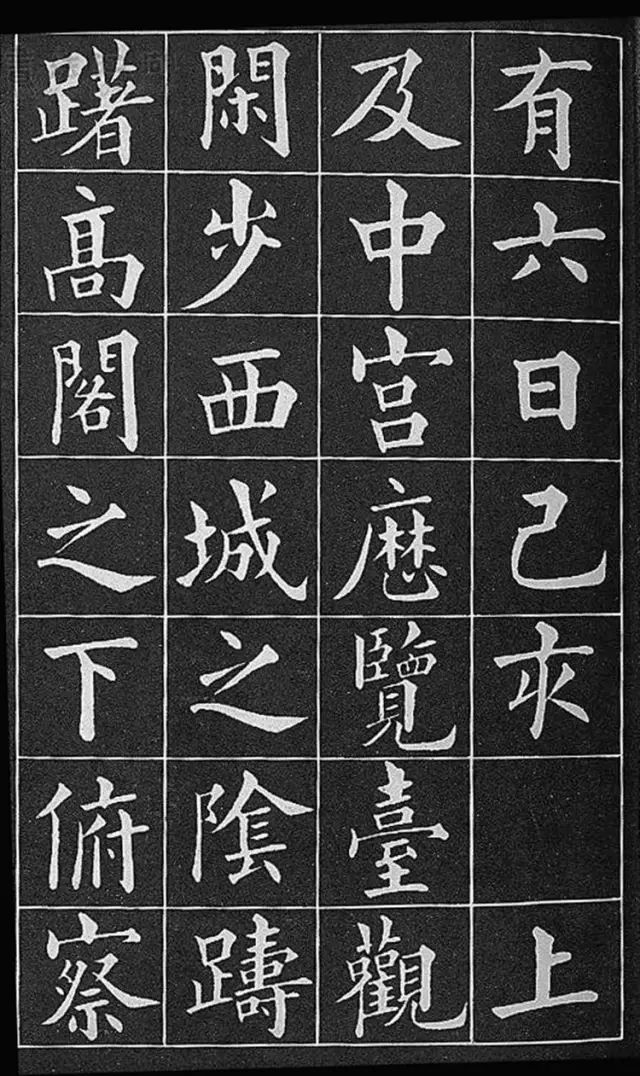 有六日己亥　上
及中宮歷覽臺觀
閑步西城之陰躊
躇髙閣之下俯察